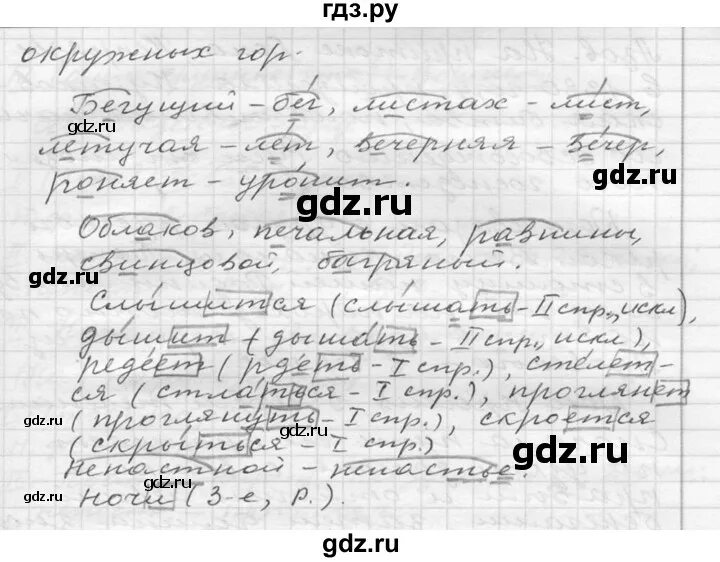 гдз.ру
окружных гор.
Бегущий – бег, листах – лист,
gdz.ru
летучая – лёт, вечерняя – вечер,
роняет – уронит.
gdz.ru
gdz.ru
Облаков, печальная, равнины,
свинцовой, багряный.
gdz.ru
Слышится (слышать – II спр., искл),
gdz.ru
дышит (дышать – II спр., искл),
редеет (рдеть – I спр.), стелет-
ся (стлаться – I спр.), проглянет
(проглянуть – I спр.), скроется
gdz.ru
(скрыться – I спр.)
gdz.ru
Ненастной – ненастье.
ночи (3-е, Р.).
gdz.ru
gdz.ru
gdz.ru
gdz.ru